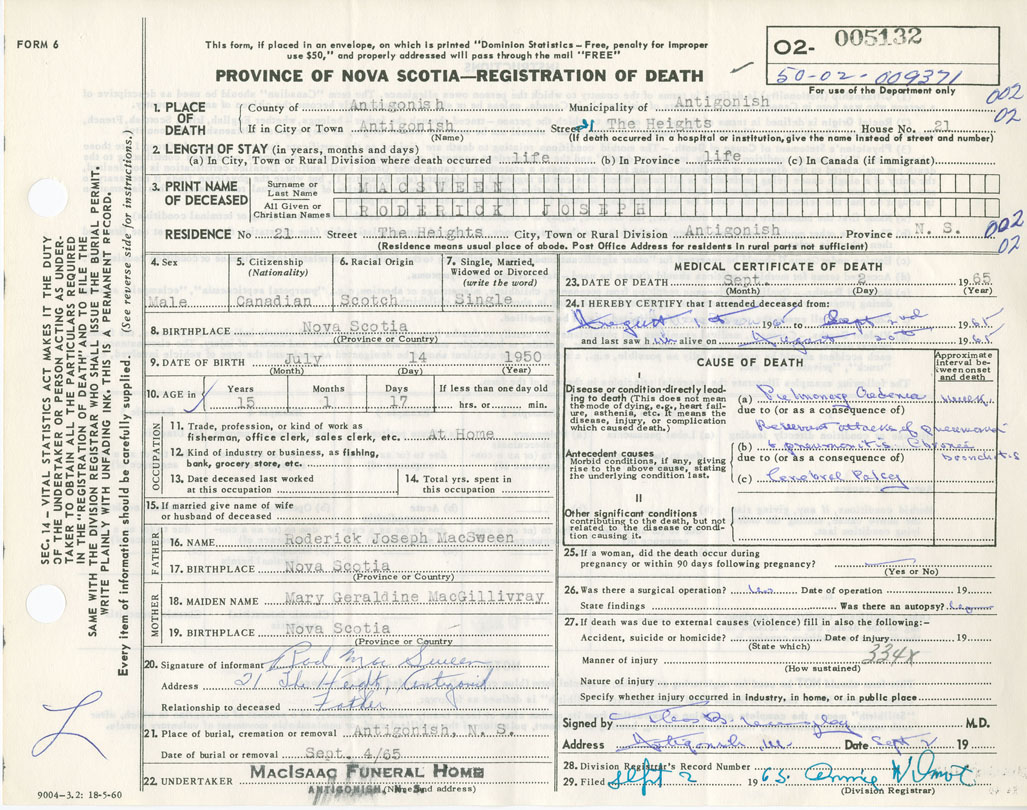 FORM 6
This form, if placed in an envelope, on which is printed "Dominion Statistics—Free, penalty for improper
use $50," and properly addressed will pass through the mail "FREE"
PROVINCE OF NOVA SCOTIA—REGISTRATION OF DEATH
02- 005132
50-02-009371
For use of the Department only
002
02
1. PLACE OF DEATH
County of Antigonish Municipality of Antigonish
If in City or Town Antigonish Street The Heights House No. 21
(Name) (If death occurred in a hospital or institution, give the name instead of street and number)
2. LENGTH OF STAY (in years, months and days)
(a) In City, Town or Rural Division where death occurred life (b) In Province life (c) In Canada (if immigrant)
3. PRINT NAME OF DECEASED
Surname or Last Name MACSWEEN
All Given or Christian Names RODERICK JOSEPH
RESIDENCE No 21 Street The Heights City, Town or Rural Division Antigonish Province N. S.
(Residence means usual place of abode. Post Office Address for residents in rural parts not sufficient)
002
02
4. Sex
Male
5. Citizenship
(Nationality)
Canadian
6. Racial Origin
Scotch
7. Single, Married,
Widowed or Divorced
(write the word)
Single
8. BIRTHPLACE Nova Scotia
(Province or Country)
9. DATE OF BIRTH July 14 1950
(Month) (Day) (Year)
10. AGE in
Years Months Days If less than one day old
15 1 17 hrs. or min.
OCCUPATION
11. Trade, profession, or kind of work as
fisherman, office clerk, sales clerk, etc. At Home
12. Kind of industry or business, as fishing,
bank, grocery store, etc.
13. Date deceased last worked
at this occupation
14. Total yrs. spent in
this occupation
15. If married give name of wife
or husband of deceased
FATHER
16. NAME Roderick Joseph MacSween
17. BIRTHPLACE Nova Scotia
(Province or Country)
MOTHER
18. MAIDEN NAME Mary Geraldine MacGillivray
19. BIRTHPLACE Nova Scotia
(Province or Country
20. Signature of informant Rod Mac Sween
Address 21 The Heights, Antigonish
Relationship to deceased Father
21. Place of burial, cremation or removal Antigonish, N. S.
Date of burial or removal Sept. 4/65
22. UNDERTAKER MACISAAC FUNERAL HOME
ANTIGONISH, N. S.
(Name and address)
MEDICAL CERTIFICATE OF DEATH
23. DATE OF DEATH Sept. 2 1965
(Month) (Day) (Year)
24. I HEREBY CERTIFY that I attended deceased from:
August 1965 to Sept 2nd 1965
and last saw him alive on August 20th 1965
CAUSE OF DEATH
Approximate
interval be-
tween onset
and death
I
Disease or condition directly lead-
ing to death (This does not mean
the mode of dying, e.g., heart fail-
ure, asthenia, etc. It means the
disease, injury, or complication
which caused death.)
(a) Pulmonary Oedema
due to (or as a consequence of)
Antecedent causes
Morbid conditions, if any, giving
rise to the above cause, stating
the underlying condition last.
Recurrent attacks of pneumonia
(b) & Chronic
due to (or as a consequence of) bronchitis
(c) Cerebral Palsy
II
Other significant conditions
contributing to the death, but not
related to the disease or condi-
tion causing it.
25. If a woman, did the death occur during
pregnancy or within 90 days following pregnancy?
(Yes or No)
26. Was there a surgical operation? no Date of operation 19
State findings Was there an autopsy? no
27. If death was due to external causes (violence) fill in also the following:-
Accident, suicide or homicide? Date of injury 19
(State which)
Manner of injury 334X
(How sustained)
Nature of injury
Specify whether injury occurred in industry, in home, or in public place
Signed by M.D.
Address Antigonish Date Sept 2 19
28. Division Registrar's Record Number
29. Filed Sept 2 1965. Annie
(Division Registrar)
SEC. 14 – VITAL STATISTICS ACT MAKES IT THE DUTY
OF THE UNDERTAKER OR PERSON ACTING AS UNDER-
TAKER "TO OBTAIN ALL THE PARTICULARS REQUIRED
IN THE "REGISTRATION OF DEATH" AND TO FILE THE
SAME WITH THE DIVISION REGISTRAR WHO SHALL ISSUE THE BURIAL PERMIT.
WRITE PLAINLY WITH UNFADING INK. THIS IS A PERMANENT RECORD.
Every item of information should be carefully supplied. (See reverse side for instructions.)
9004-3.2: 18-5-60